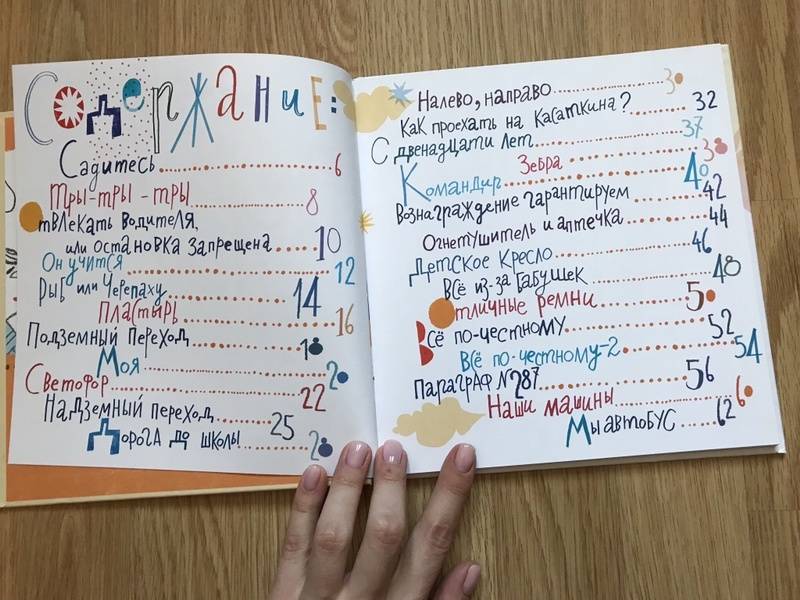 Содержание:
Садитесь 6
Тры-тры-тры 8
Отвлекать водителя,
или остановка запрещена 10
Он учится 12
Рыб или Черепаху 14
Пластырь 16
Подземный переход 18
Моя 20
Светофор 22
Надземный переход 25
Дорога до школы 28
Налево, направо 30
Как проехать на Касаткина? 32
С двенадцати лет 37
Зебра 38
Командир 40
Вознаграждение гарантируем 42
Огнетушитель и аптечка 44
Детское кресло 46
Всё из-за бабушек 48
Отличные ремни 50
Всё по-честному 52
Всё по-честному-2 54
Параграф №287 56
Наши машины 60
Мы автобус 62